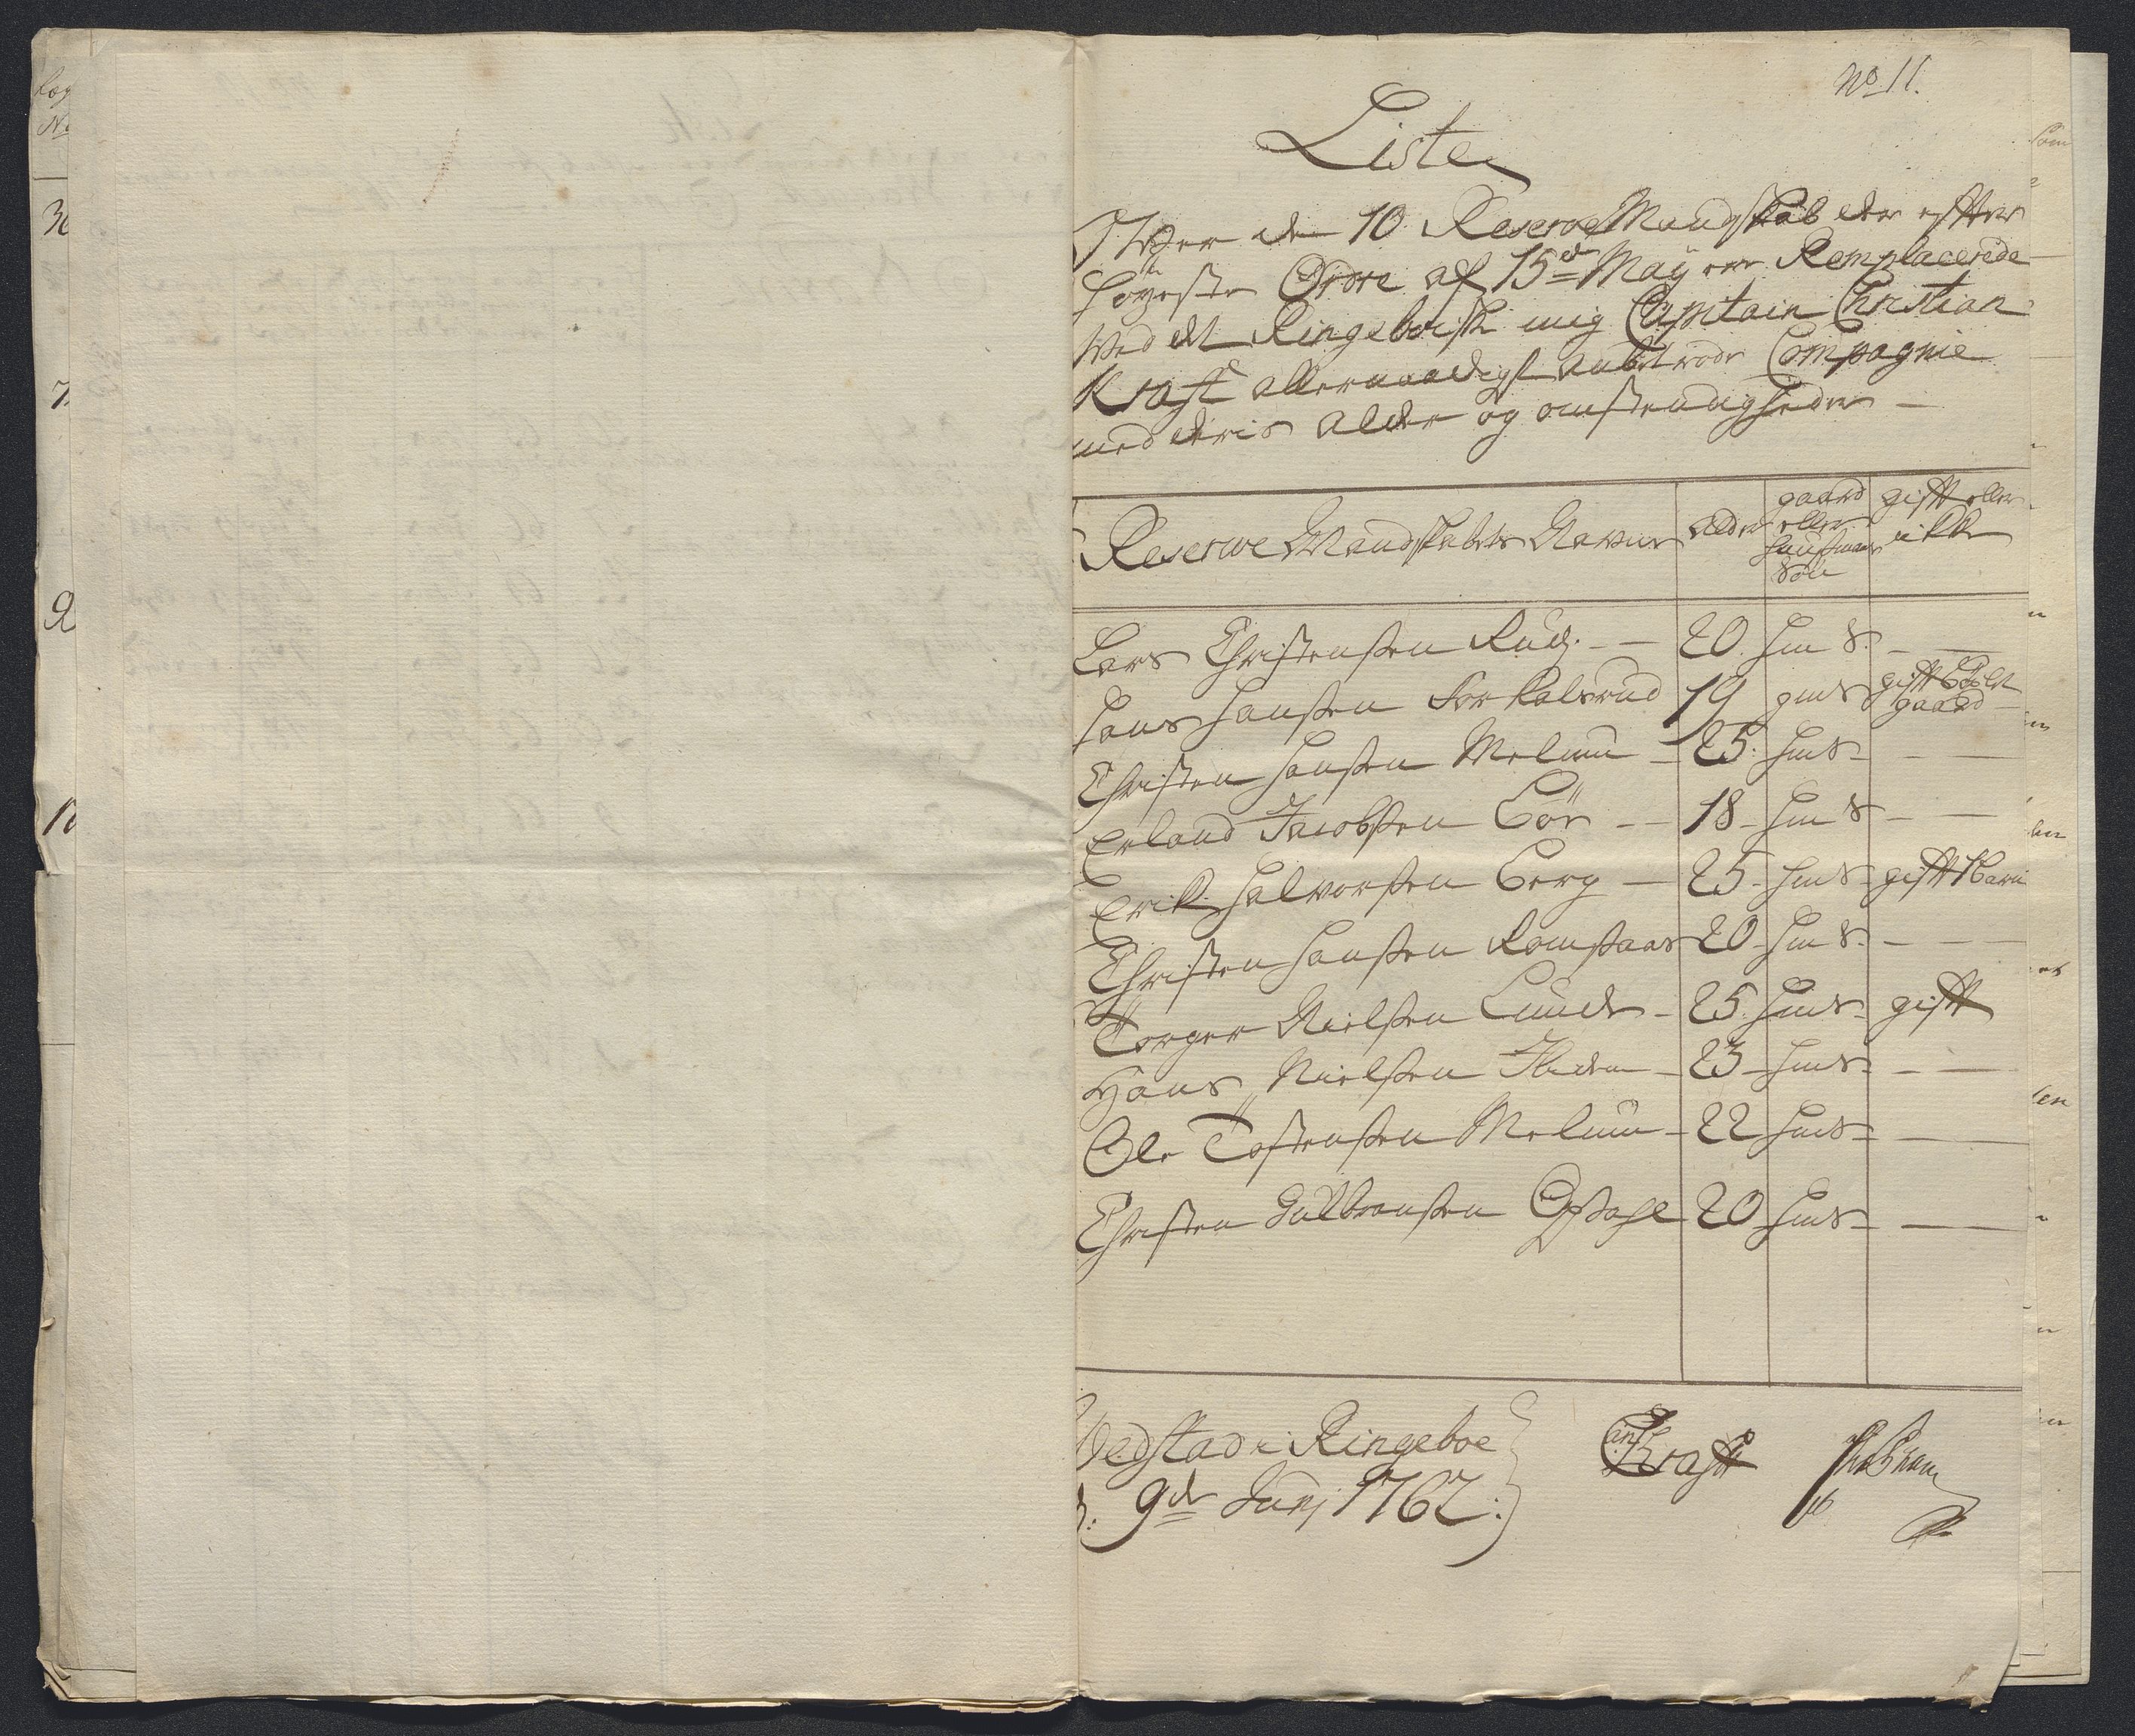 No 11.
Liste
Over de 10 Reserve Mandskab der efter
høyeste Ordre af 15de May er Remplacerede
ved det Ringeboiske mig Captain Christian
Kraft allernaadigst anbetroede Compagnie
med deris alder og omstendigheder -
Reserve Mandskabets Navne alder gaard eller huusmans Søn gift eller ikke
Lars Christensen Rudj. - 20. hm S. - -
Hans Hansen Forkalsrud 19 gmS gift gaard -
Christen Hansen Melum - 25. hmS - - -
Erland Jacobsen Bør - - 18 - hm S - -
Erik Halvorsen Berg - 25 - hmS - gift 1 barn
Christen Hansen Romsaas 20 - hm S. - -
Torger Nielsen Lunde - 25. hmS - gift
Hans Nielsen - 23 - hmS - - -
Ole Tostensen Melum - 22 hmS - -
Christen Gulbransen Opsahl 20 hmS - -
Vedstad i Ringeboe
d: 9de Junj 1762.
Kraft